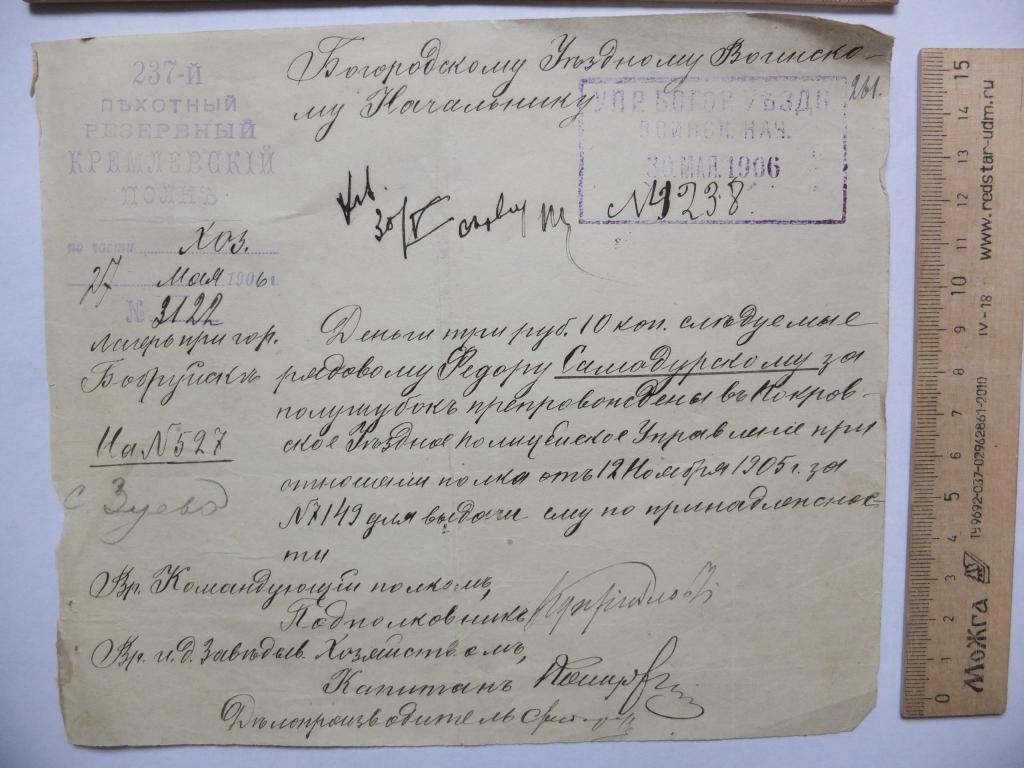 Богородскому Уѣздному Воинско-
му Начальнику
261.
237-Й
ПѢХОТНЫЙ
РЕЗЕРВНЫЙ
КРЕМЛЕВСКІЙ
ПОЛКЪ
по части Хоз.
27 мая 1906 г.
№ 3122
лагерь при гор.
Бобруйскѣ
На № 527
с Зуево
УПР. БОГОР. УѢЗДН.
ВОИНСК. НАЧ.
30 МАЯ 1906
№ 4238
30/V
Деньги три руб. 10 коп. слѣдуемые
рядовому Федору Самодурскому за
полушубокъ препровождены въ Покров-
ское Уѣздное полицейское Управленіе при
отношеніи полка отъ 12 Ноября 1905 г. за
№ 7149 для выдачи ему по принадлежнос-
ти
Вр. Командующій полкомъ,
Подполковникъ
Вр. и. д. Завѣдыв. Хозяйствомъ,
Капитанъ
Дѣлопроизводитель
15
14
13
12
11
10
9
8
7
6
5
4
3
2
1
0
www.redstar-udm.ru
IV -18
ТУ 9692-037-02962861-2010
МОЖГА